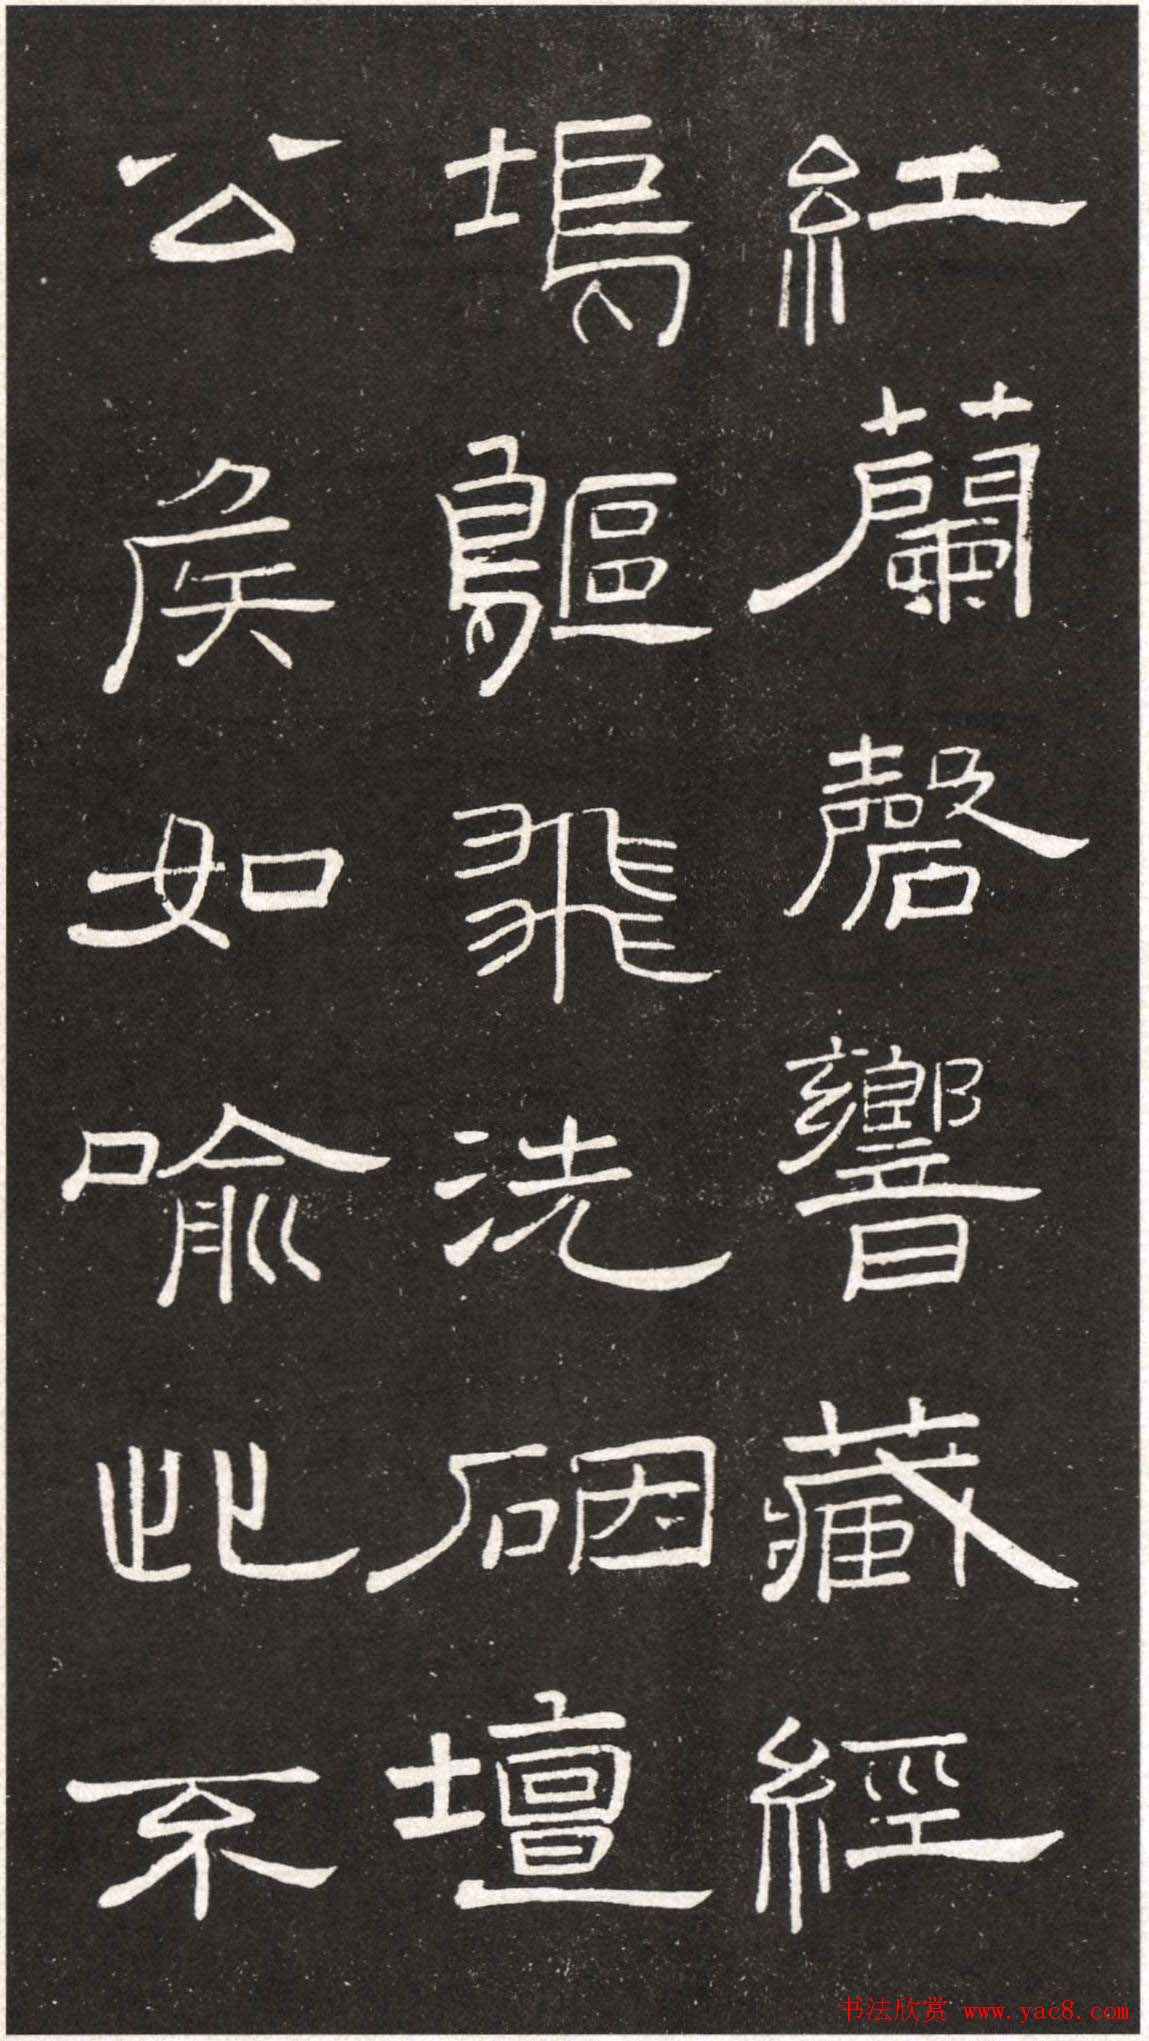 紅蘭磬響藏經
塢鷗飛洗壇
公侯如喻此不
书法欣赏 www.yac8.com